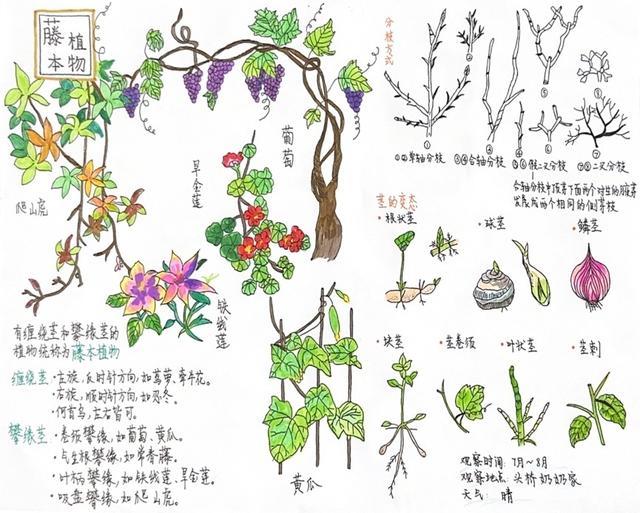 藤本
植物
爬山虎
葡萄
旱金莲
铁线莲
黄瓜
有缠绕茎和攀缘茎的
植物统称为藤本植物
缠绕茎
·左旋，反时针方向，如茑萝、牵牛花。
·右旋，顺时针方向，如忍冬。
·何首乌，左右皆可。
攀缘茎
·卷须攀缘，如葡萄、黄瓜。
·气生根攀缘，如常春藤。
·叶柄攀缘，如铁线莲、旱金莲。
·吸盘攀缘，如爬山虎。
分枝方式
①②单轴分枝
③④合轴分枝
⑤⑥假二叉分枝
⑦⑧二叉分枝
合轴分枝中顶芽下面两个对生的腋芽
发展成两个相同的侧芽枝
茎的变态
·根状茎
·球茎
·鳞茎
·块茎
·茎卷须
·叶状茎
·茎刺
观察时间：7月~8月
观察地点：头桥奶奶家
天气：晴